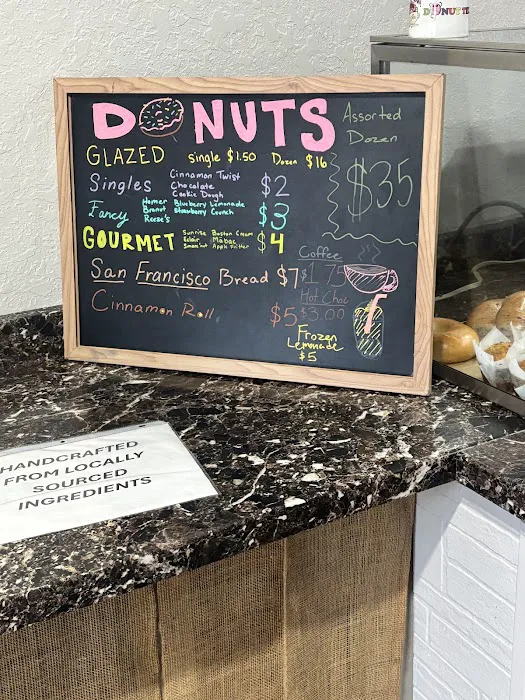 DONUTS
GLAZED single $1.50 Dozen $16
Singles Cinnamon Twist Chocolate Cookie Dough $2
Fancy Homer Blueberry Lemonade Strawberry Crunch Reese's $3
GOURMET Sunrise Boston Cream Mabac Apple Fritter $4
San Francisco Bread $7
Cinnamon Roll $5
Assorted
Dozen
$35
Coffee
$1.75
Hot Choc
$3.00
Frozen
Lemonade
$5
HANDCRAFTED
FROM LOCALLY
SOURCED
INGREDIENTS